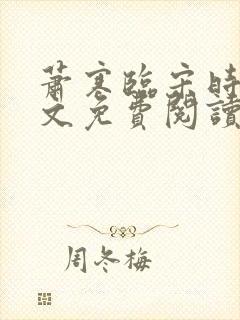 蕭寒臨宗時
文免費閱讀
周冬梅